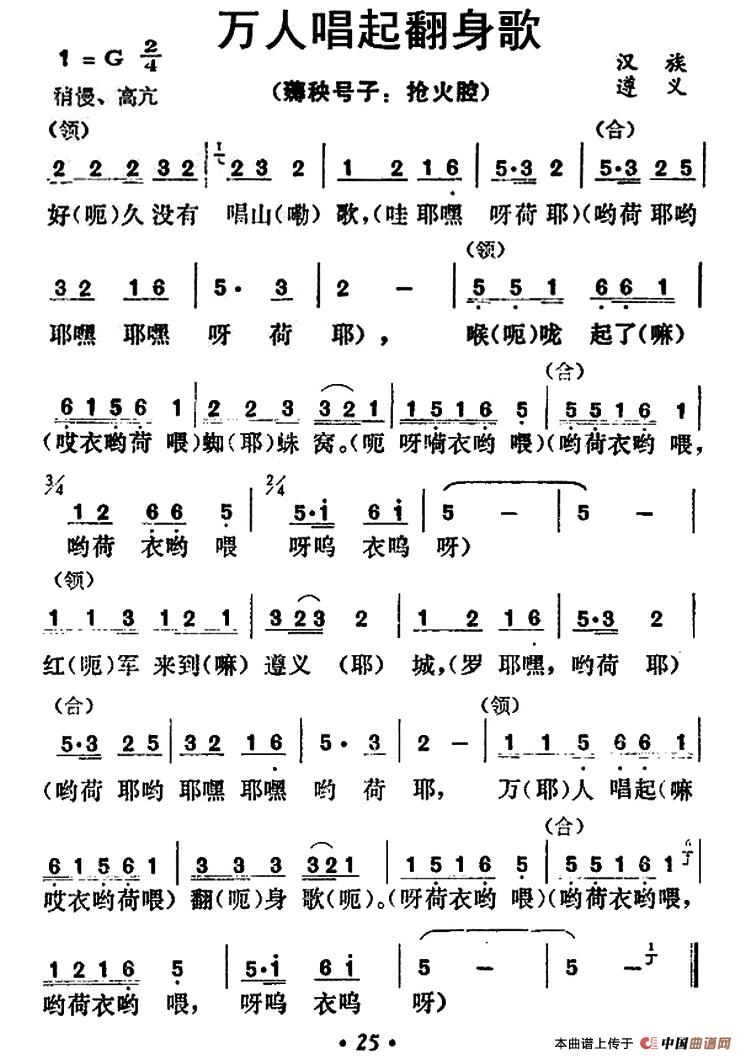 万人唱起翻身歌
1=G 2/4
汉 族
稍慢、高亢
（薅秧号子：抢火腔）
遵 义
（领） （合）
2 2 2 3 2 | 2 3 2 | 1 2 1 6 | 5·3 2 | 5·3 2 5 |
好（呃）久没有 唱山（嘞）歌，（哇耶嘿 呀荷耶）（哟荷耶哟
（领）
3 2 1 6 | 5· 3 | 2 － | 5 5 1 6 6 1 |
耶嘿 耶嘿 呀 荷 耶）， 喉（呃）咙 起了（嘛）
（合）
6 1 5 6 1 | 2 2 3 3 2 1 | 1 5 1 6 5 | 5 5 1 6 1 |
（哎衣哟荷 喂）蜘（耶）蛛 窝。（呃 呀嗬衣哟 喂）（哟荷衣哟 喂，
3/4 2/4
1 2 6 6 5 | 5·i 6 i | 5 － | 5 － |
哟荷 衣哟 喂 呀呜 衣呜 呀）
（领）
1 1 3 1 2 1 | 3 2 3 2 | 1 2 1 6 | 5·3 2 |
红（呃）军 来到（嘛）遵义 （耶） 城，（罗 耶嘿， 哟荷 耶）
（合） （领）
5·3 2 5 | 3 2 1 6 | 5· 3 | 2 － | 1 1 5 6 6 1 |
（哟荷 耶哟 耶嘿 耶嘿 哟 荷 耶， 万（耶）人 唱起（嘛
（合）
6 1 5 6 1 | 3 3 3 3 2 1 | 1 5 1 6 5 | 5 5 1 6 1 |
哎衣哟荷喂）翻（呃）身 歌（呃）。（呀荷衣哟 喂）（哟荷衣哟喂，
1 2 1 6 5 | 5·i 6 i | 5 － | 5 － ‖
哟荷衣哟 喂， 呀呜 衣呜 呀）
·25·
本曲谱上传于 中国曲谱网